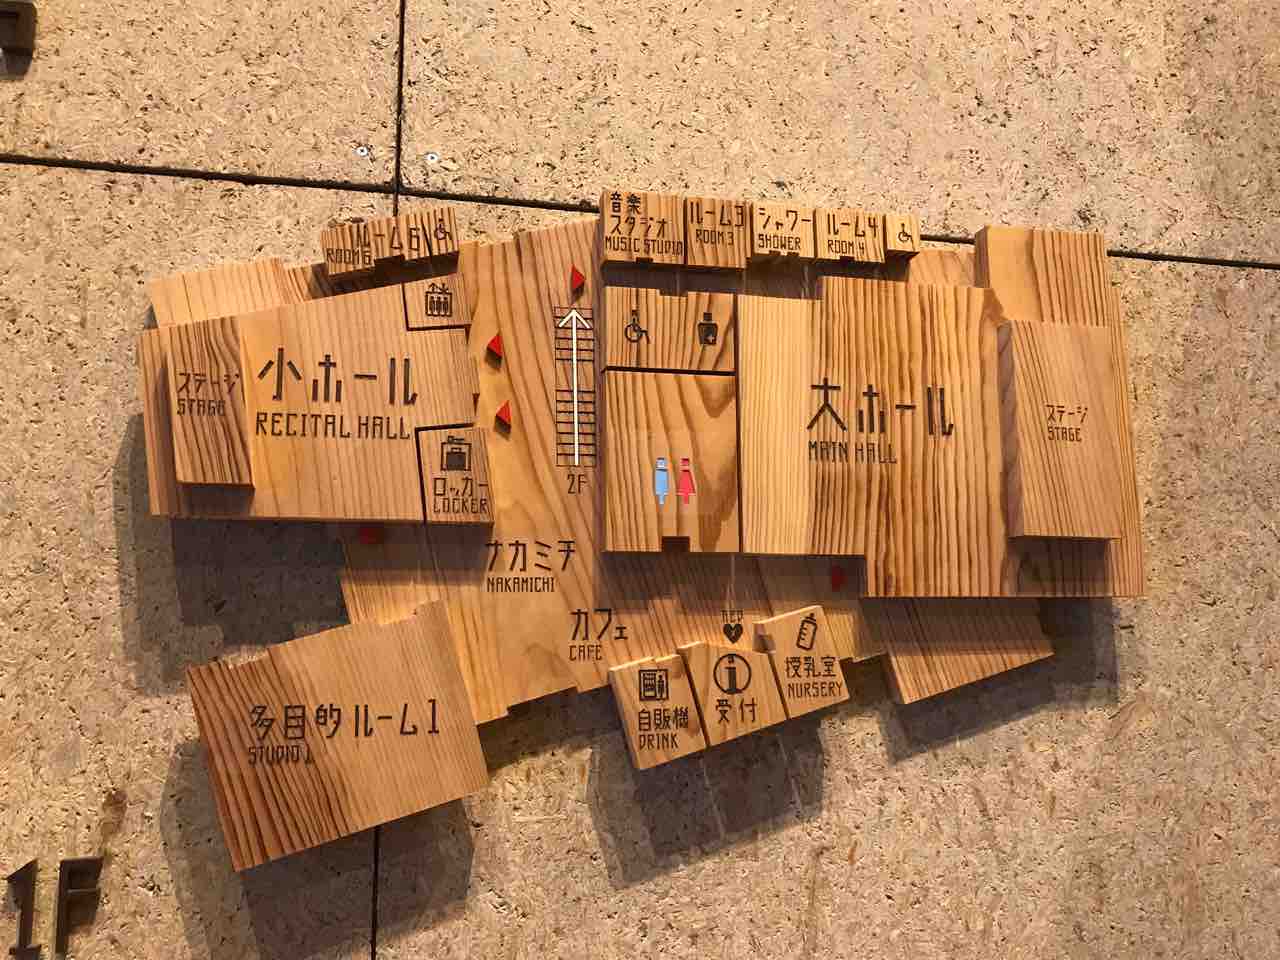 音楽
スタジオ
MUSIC STUDIO
ルーム3
ROOM 3
シャワー
SHOWER
ルーム4
ROOM 4
ルーム6
ROOM 6
ステージ
STAGE
小ホール
RECITAL HALL
ロッカー
LOCKER
2F
大ホール
MAIN HALL
ステージ
STAGE
ナカミチ
NAKAMICHI
カフェ
CAFE
AED
自販機
DRINK
受付
授乳室
NURSERY
多目的ルーム1
STUDIO 1
1F